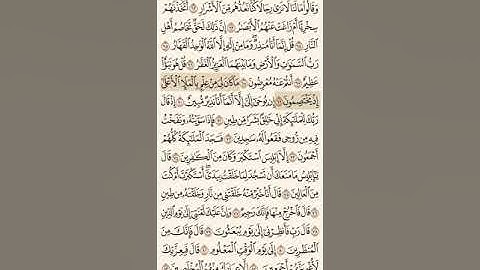 وَقَالُوا۟ مَا لَنَا لَا نَرَىٰ رِجَالًا كُنَّا نَعُدُّهُم مِّنَ ٱلْأَشْرَارِ ۝٦٢ أَتَّخَذْنَٰهُمْ
سِخْرِيًّا أَمْ زَاغَتْ عَنْهُمُ ٱلْأَبْصَٰرُ ۝٦٣ إِنَّ ذَٰلِكَ لَحَقٌّ تَخَاصُمُ أَهْلِ
ٱلنَّارِ ۝٦٤ قُلْ إِنَّمَآ أَنَا۠ مُنذِرٌ وَمَا مِنْ إِلَٰهٍ إِلَّا ٱللَّهُ ٱلْوَٰحِدُ ٱلْقَهَّارُ ۝٦٥
رَبُّ ٱلسَّمَٰوَٰتِ وَٱلْأَرْضِ وَمَا بَيْنَهُمَا ٱلْعَزِيزُ ٱلْغَفَّٰرُ ۝٦٦ قُلْ هُوَ نَبَؤٌا۟
عَظِيمٌ ۝٦٧ أَنتُمْ عَنْهُ مُعْرِضُونَ ۝٦٨ مَا كَانَ لِىَ مِنْ عِلْمٍۭ بِٱلْمَلَإِ ٱلْأَعْلَىٰٓ
إِذْ يَخْتَصِمُونَ ۝٦٩ إِن يُوحَىٰٓ إِلَىَّ إِلَّآ أَنَّمَآ أَنَا۠ نَذِيرٌ مُّبِينٌ ۝٧٠ إِذْ قَالَ
رَبُّكَ لِلْمَلَٰٓئِكَةِ إِنِّى خَٰلِقٌۢ بَشَرًا مِّن طِينٍ ۝٧١ فَإِذَا سَوَّيْتُهُۥ وَنَفَخْتُ
فِيهِ مِن رُّوحِى فَقَعُوا۟ لَهُۥ سَٰجِدِينَ ۝٧٢ فَسَجَدَ ٱلْمَلَٰٓئِكَةُ كُلُّهُمْ
أَجْمَعُونَ ۝٧٣ إِلَّآ إِبْلِيسَ ٱسْتَكْبَرَ وَكَانَ مِنَ ٱلْكَٰفِرِينَ ۝٧٤ قَالَ
يَٰٓإِبْلِيسُ مَا مَنَعَكَ أَن تَسْجُدَ لِمَا خَلَقْتُ بِيَدَىَّ أَسْتَكْبَرْتَ أَمْ كُنتَ
مِنَ ٱلْعَالِينَ ۝٧٥ قَالَ أَنَا۠ خَيْرٌ مِّنْهُ خَلَقْتَنِى مِن نَّارٍ وَخَلَقْتَهُۥ مِن طِينٍ
۝٧٦ قَالَ فَٱخْرُجْ مِنْهَا فَإِنَّكَ رَجِيمٌ ۝٧٧ وَإِنَّ عَلَيْكَ لَعْنَتِىٓ إِلَىٰ يَوْمِ ٱلدِّينِ
۝٧٨ قَالَ رَبِّ فَأَنظِرْنِىٓ إِلَىٰ يَوْمِ يُبْعَثُونَ ۝٧٩ قَالَ فَإِنَّكَ مِنَ
ٱلْمُنظَرِينَ ۝٨٠ إِلَىٰ يَوْمِ ٱلْوَقْتِ ٱلْمَعْلُومِ ۝٨١ قَالَ فَبِعِزَّتِكَ
لَأُغْوِيَنَّهُمْ أَجْمَعِينَ ۝٨٢ إِلَّا عِبَادَكَ مِنْهُمُ ٱلْمُخْلَصِينَ ۝٨٣